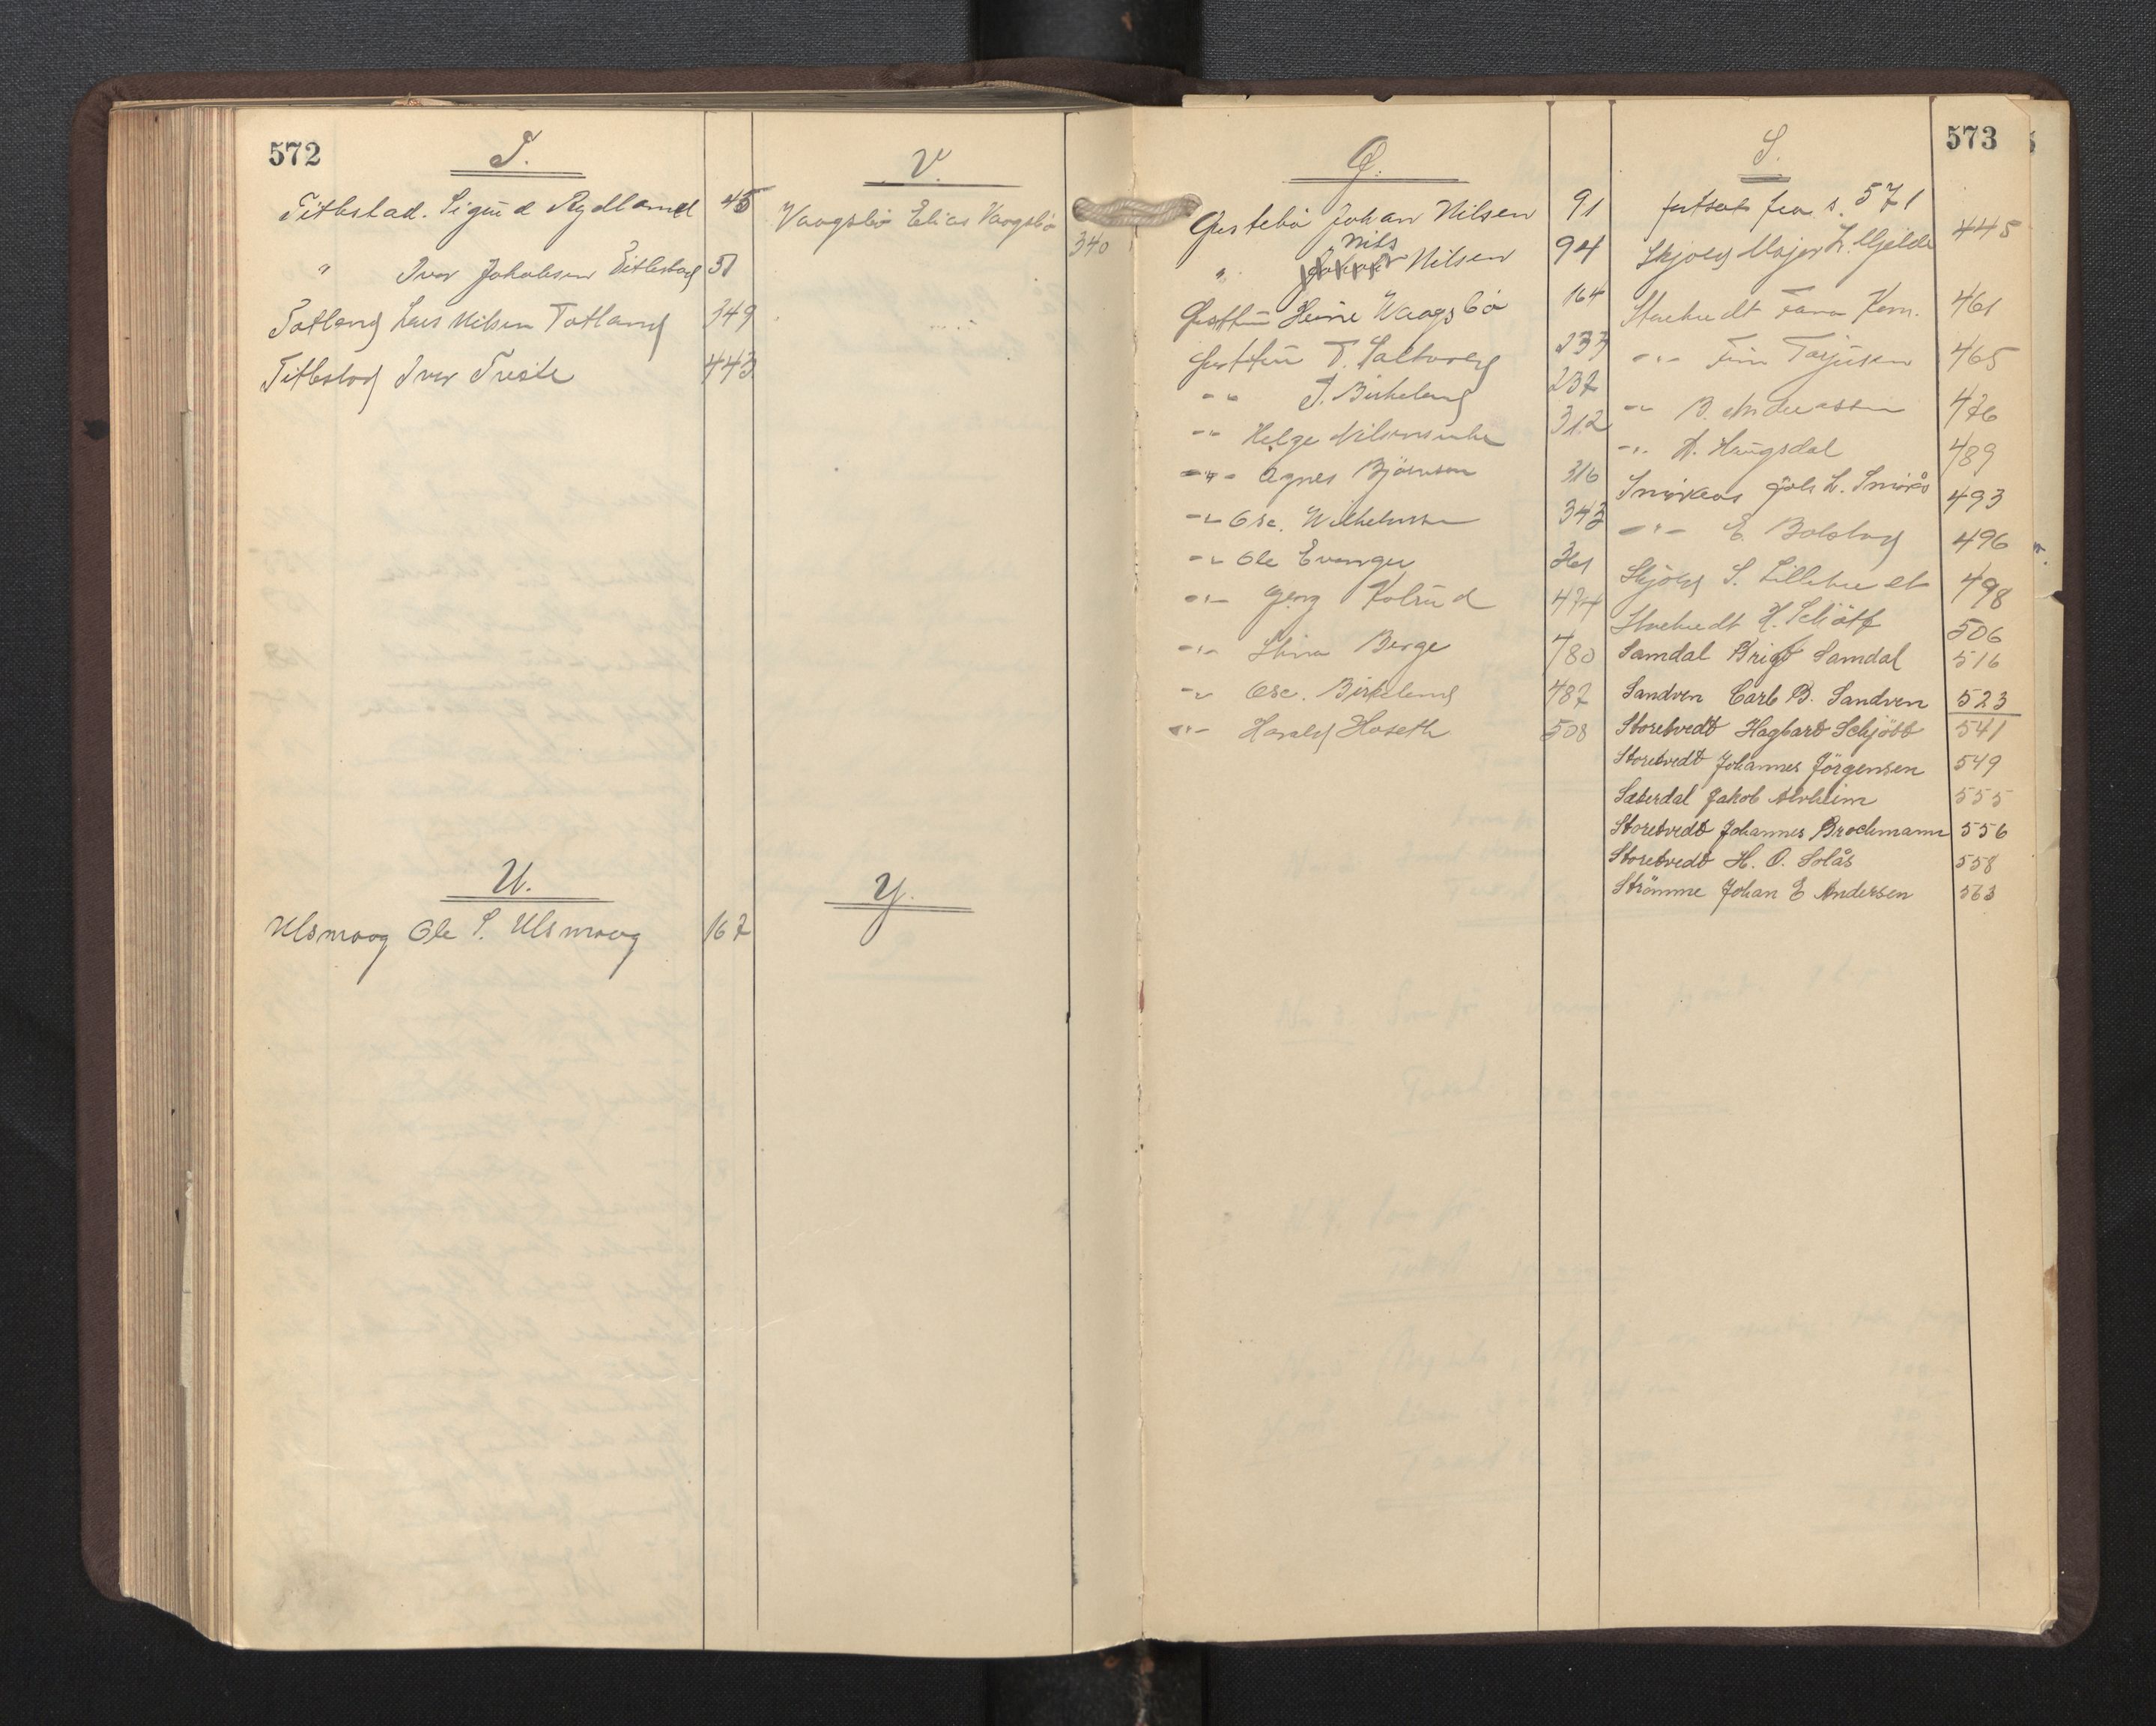 572
T.
Titlestad. Sigurd Rydland 45
" Iver Jakobsen Titlestad 51
Totland Lars Nilsen Totland 349
Titlestad Iver Tveite 443
U.
Ulsmaag Ole S. Ulsmaag 167
V.
Vaagsbö Elias Vaagsbö 340
Y.
573
Ø.
Johan Nilsen 91
" Nils Nilsen 94
Heine Waagsbö 164
T. Saltveig 233
-"- T. Birkeland 237
-"- Helge 312
-"- Agnes Björnson 316
-"- Osc. Wilhelmsen 343
-"- Ole Evanger 361
-"- Georg Kolrud 474
-"- Stina Berge 480
-"- Osc. Birkeland 487
-"- Harald Haseth 508
S.
fortsat fra s. 571
Skjold Major L. Mjelde 445
Storetvedt Fana Kom. 461
-"- Finn Tarjusen 465
-"- B. Andreassen 476
-"- H. Haugsdal 489
Smöraas Joh. L. Smörås 493
-"- E. Bolstad 496
Skjold S. Lilletvedt 498
Storetvedt H. Schött 506
Samdal Brigt Samdal 516
Sandven Carb B. Sandven 523
Storetvedt Hagbart Schjött 541
Storetvedt Johannes Jörgensen 549
Sæterdal Jakob Alvheim 555
Storetvedt Johannes Brochmann 556
Storetvedt H. O. Solås 558
Strömme Johan E Andersen 563